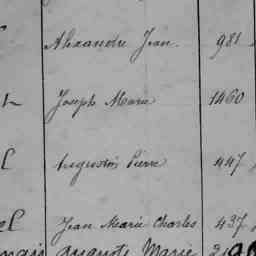 Alexandre Jean. 981
Joseph Marie 1460
Augustin Pierre 447
Jean Marie Charles 437
Marie